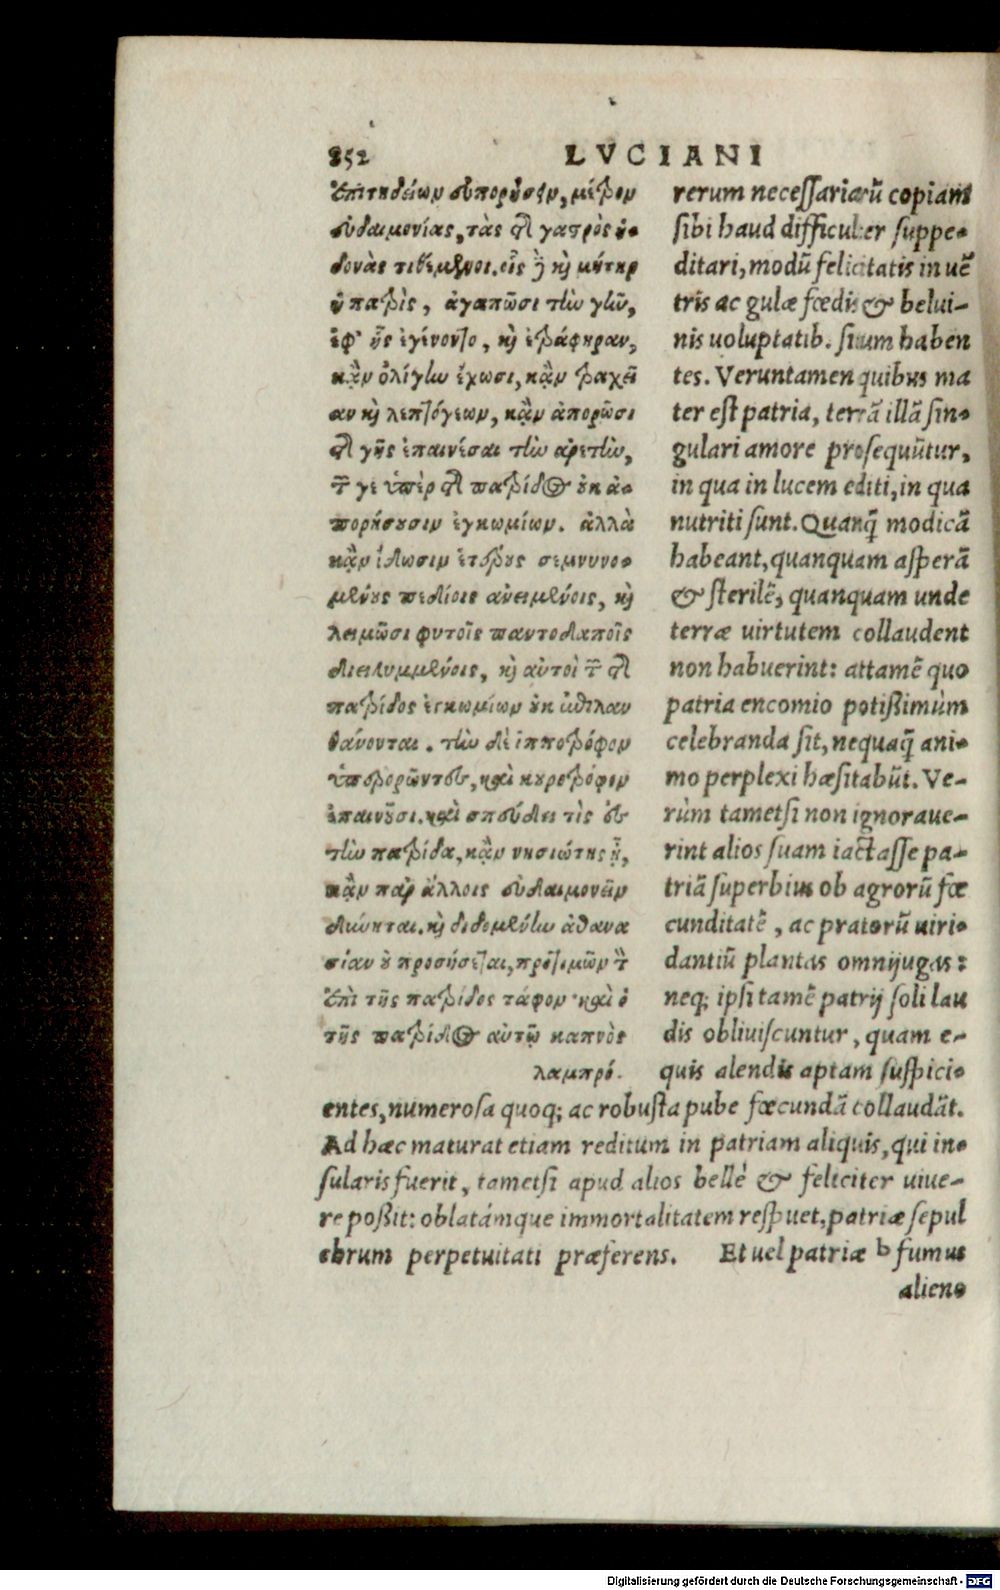 252
LVCIANI
ἐπιτηδείων εὐπορήσειν, μέτρον
εὐδαιμονίας, τὰς τῆς γαστρὸς ἡ-
δονὰς τιθέμενοι. οἷς δὲ καὶ μήτηρ
ἡ πατρὶς, ἀγαπῶσι τὴν γῆν,
ἐφ' ἧς ἐγένοντο, καὶ ἐτράφησαν,
κἂν ὀλίγην ἔχωσι, κἂν τραχεῖ
αν καὶ λεπτόγεων, κἂν ἀπορῶσι
τῆς γῆς ἐπαινέσαι τὴν ἀρετὴν,
τῶν γε ὑπὲρ τῆς πατρίδος οὐκ ἀ-
πορήσουσιν ἐγκωμίων. ἀλλὰ
κἂν ἴδωσιν ἑτέρους σεμνυνο-
μένους πεδίοις ἀνειμένοις, καὶ
λειμῶσι φυτοῖς παντοδαποῖς
διειλυμμένοις, καὶ αὐτοὶ τῶν τῆς
πατρίδος ἐγκωμίων οὐκ ἐπιλαν
θάνονται. τὴν δὲ ἱπποτρόφον
ὑπερορῶντες, καὶ κουροτρόφον
ἐπαινοῦσι. καὶ σπεύδει τὶς ἐς
τὴν πατρίδα, κἂν νησιώτης ᾖ,
κἂν παρ' ἄλλοις εὐδαιμονεῖν
δύνηται. καὶ διδομένην ἀθανα
σίαν οὐ προσήσεται, προτιμῶν τὸν
ἐπὶ τῆς πατρίδος τάφον· καὶ ὁ
τῆς πατρίδος αὐτῷ καπνὸς
λαμπρό-
rerum necessariarũ copiam
sibi haud difficulter suppe-
ditari, modũ felicitatis in uẽ
tris ac gulæ fœdis & belui-
nis uoluptatib. situm haben
tes. Veruntamen quibus ma
ter est patria, terrã illã sin-
gulari amore prosequũtur,
in qua in lucem editi, in qua
nutriti sunt. Quanq̃ modicã
habeant, quanquam asperã
& sterilẽ, quanquam unde
terræ uirtutem collaudent
non habuerint: attamẽ quo
patria encomio potißimùm
celebranda sit, nequaq̃ ani-
mo perplexi hæsitabũt. Ve-
rùm tametsi non ignoraue-
rint alios suam iactasse pa-
triã superbius ob agrorũ fœ
cunditatẽ, ac pratorũ uiri-
dantiũ plantas omnijugas:
neq; ipsi tamẽ patrij soli lau
dis obliuiscuntur, quam e-
quis alendis aptam suspici-
entes, numerosa quoq; ac robusta pube fœcundã collaudãt.
Ad hæc maturat etiam reditum in patriam aliquis, qui in-
sularis fuerit, tametsi apud alios bellè & feliciter uiue-
re poßit: oblatámque immortalitatem respuet, patriæ sepul
chrum perpetuitati præferens. Et uel patriæ b fumus
alieno
Digitalisierung gefördert durch die Deutsche Forschungsgemeinschaft - DFG